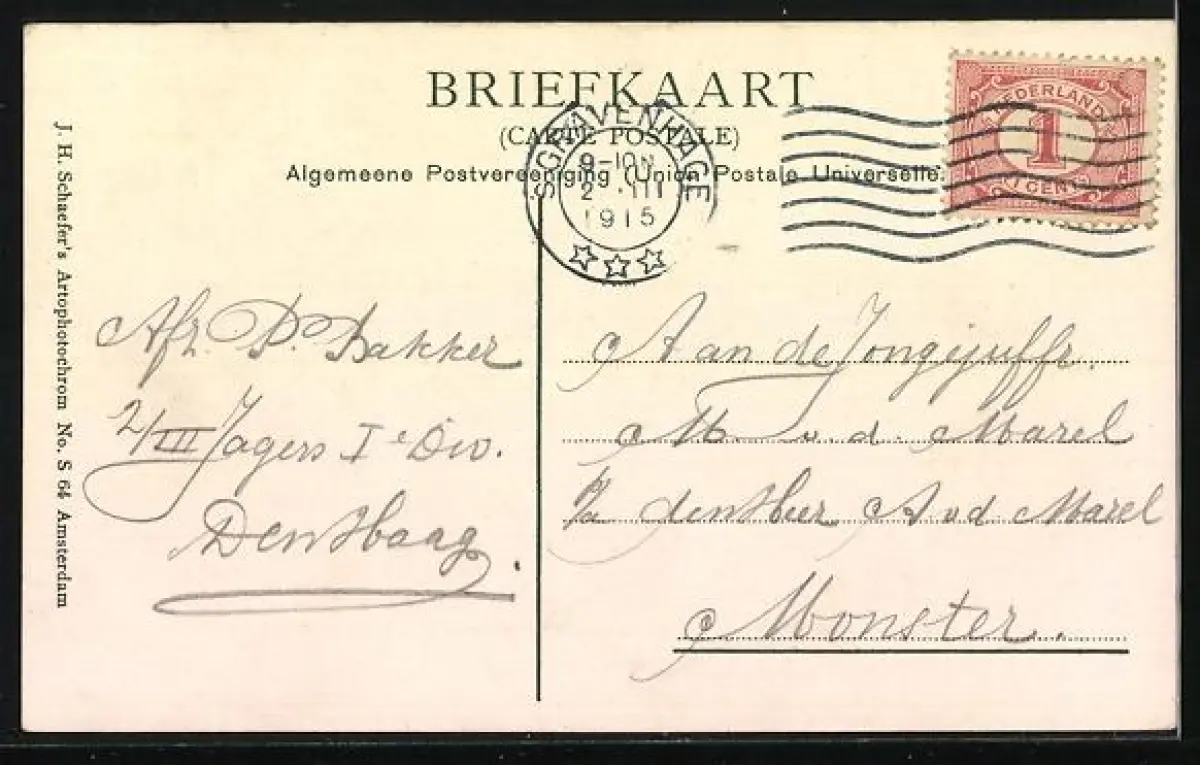 BRIEFKAART
(CARTE POSTALE)
Algemeene Postvereeniging (Union Postale Universelle.
'SGRAVENHAGE
9-10N
2 .III
1915
NEDERLAND
1
1 CENT
J. H. Schaefer's Artophotochrom No. S 64 Amsterdam
Afz. P. Bakker
2/III Jagers Ie Div.
Den Haag.
Aan de Jongejuffr.
M. v.d. Marel
p/a den Heer A v d Marel
Monster.